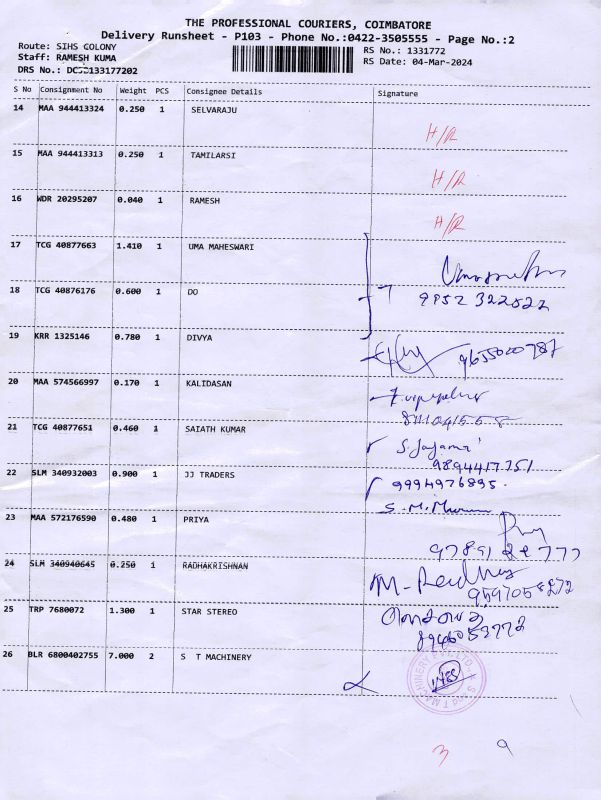 THE PROFESSIONAL COURIERS, COIMBATORE
Delivery Runsheet - P103 - Phone No.:0422-3505555 - Page No.:2
Route: SIHS COLONY
RS No.: 1331772
Staff: RAMESH KUMA
RS Date: 04-Mar-2024
DRS No.:
S No Consignment No Weight PCS Consignee Details Signature
14 MAA 944413324 0.250 1 SELVARAJU
H/R
15 MAA 944413313 0.250 1 TAMILARSI
H/R
16 WDR 20295207 0.040 1 RAMESH
H/R
17 TCG 40877663 1.410 1 UMA MAHESWARI
18 TCG 40876176 0.600 1 DO
9952 322522
19 KRR 1325146 0.780 1 DIVYA
20 MAA 574566997 0.170 1 KALIDASAN
21 TCG 40877651 0.460 1 SAIATH KUMAR
9894417351
22 SLM 340932003 0.900 1 JJ TRADERS
9994976895.
23 MAA 572176590 0.480 1 PRIYA
24 SLM 340940645 0.250 1 RADHAKRISHNAN
25 TRP 7680072 1.300 1 STAR STEREO
26 BLR 6800402755 7.000 2 S T MACHINERY
3 9